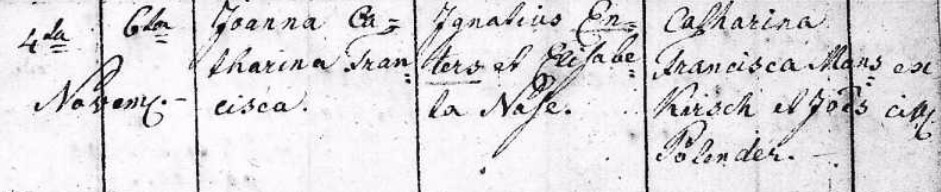 4ta
Novemb.
6ta
Joanna Ca=
tharina Fran=
cisca.
Ignatius En=
ters et Elisabe=
ta Nase.
Catharina
Francisca Mans ex
Kirsch et Jo͞es civ.
Polender.